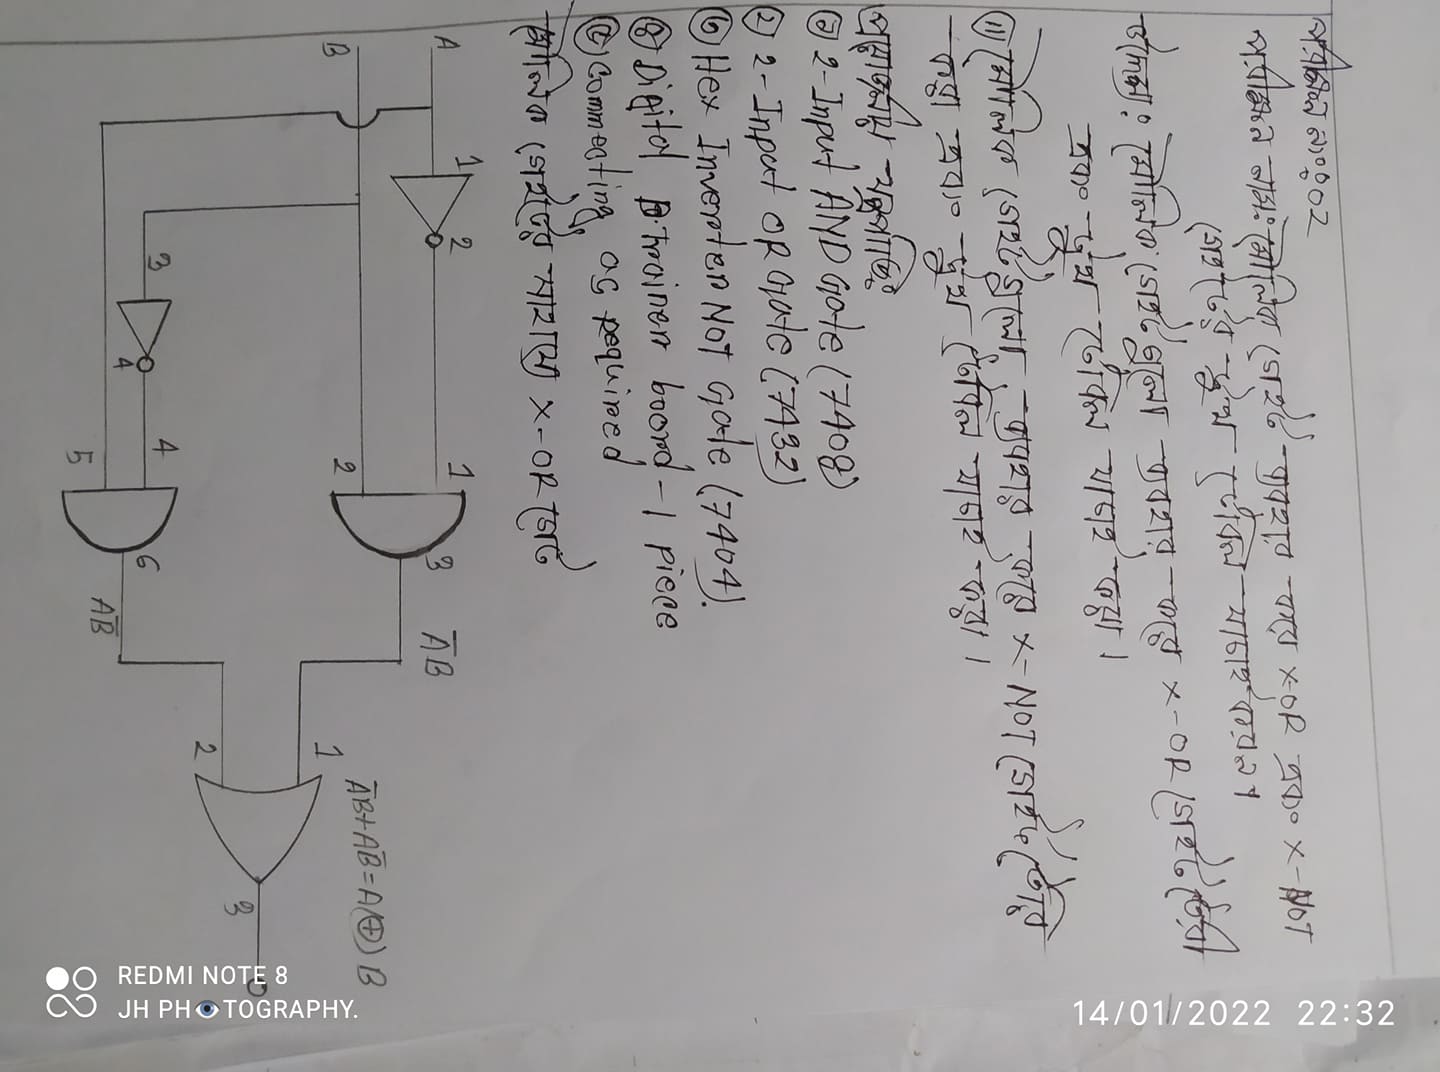 পরীক্ষন নং: ০২
পরীক্ষনের নাম: মৌলিক গেইট ব্যবহার করে X-OR এবং X-NOT
গেইটের ট্রুথ টেবিল যাচাই করণ।
উদ্দেশ্য: মৌলিক গেইটগুলো ব্যবহার করে X-OR গেইট তৈরী
এবং ট্রুথ টেবিল যাচাই করা।
(ii) মৌলিক গেইটগুলো ব্যবহার করে X-NOT গেইট তৈরি
করা এবং ট্রুথ টেবিল যাচাই করা।
প্রয়োজনীয় যন্ত্রপাতি:
① 2-Input AND Gate (7408)
② 2-Input OR Gate (7432)
③ Hex Inverter NOT Gate (7404).
④ Digital trainer board - 1 piece
⑤ Connecting as required
মৌলিক গেইটের সাহায্যে X-OR গেট
A
B
1
2
3
4
1
2
3
4
5
6
A̅B
AB̅
1
2
3
A̅B+AB̅=A⊕B
REDMI NOTE 8
JH PHOTOGRAPHY.
14/01/2022 22:32